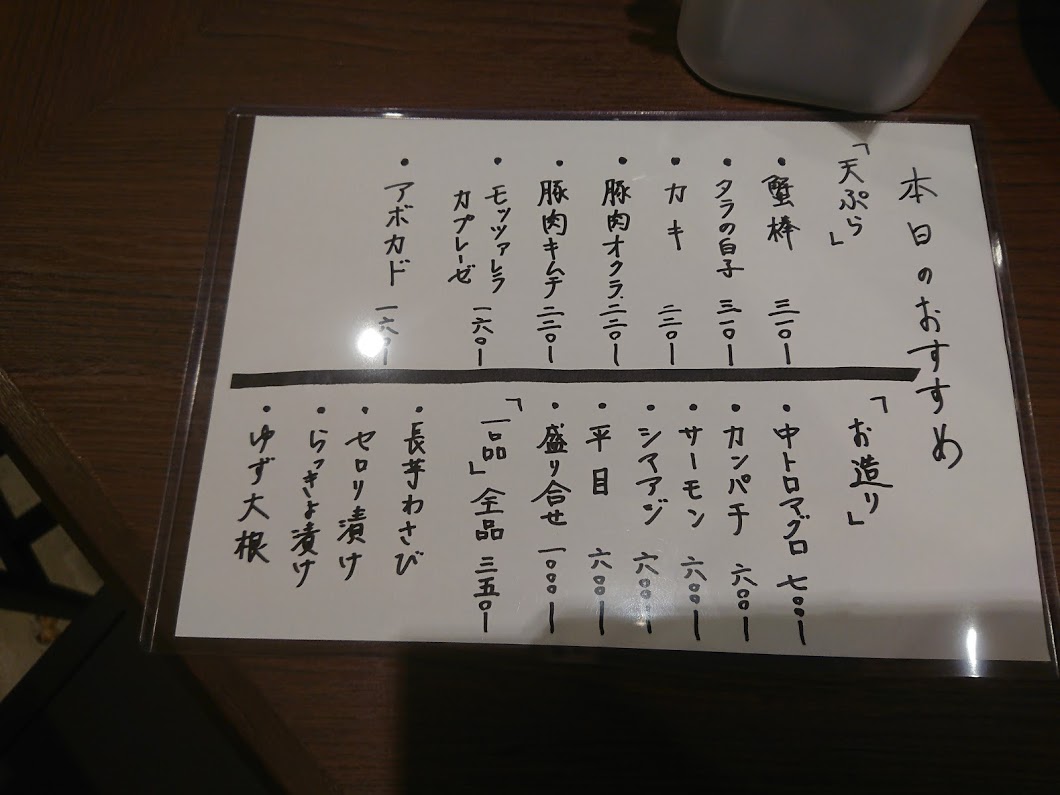 本日のおすすめ
「天ぷら」
・蟹棒 三一〇ー
・タラの白子 三一〇ー
・カキ 二二〇ー
・豚肉オクラ 二二〇ー
・豚肉キムチ 二二〇ー
・モッツァレラ
カプレーゼ 一六〇ー
・アボカド 一六〇ー
「お造り」
・中トロマグロ 七〇〇ー
・カンパチ 六〇〇ー
・サーモン 六〇〇ー
・シマアジ 六〇〇ー
・平目 六〇〇ー
・盛り合せ 一〇〇〇ー
「一品」全品 三五〇ー
・長芋わさび
・セロリ漬け
・らっきょ漬け
・ゆず大根